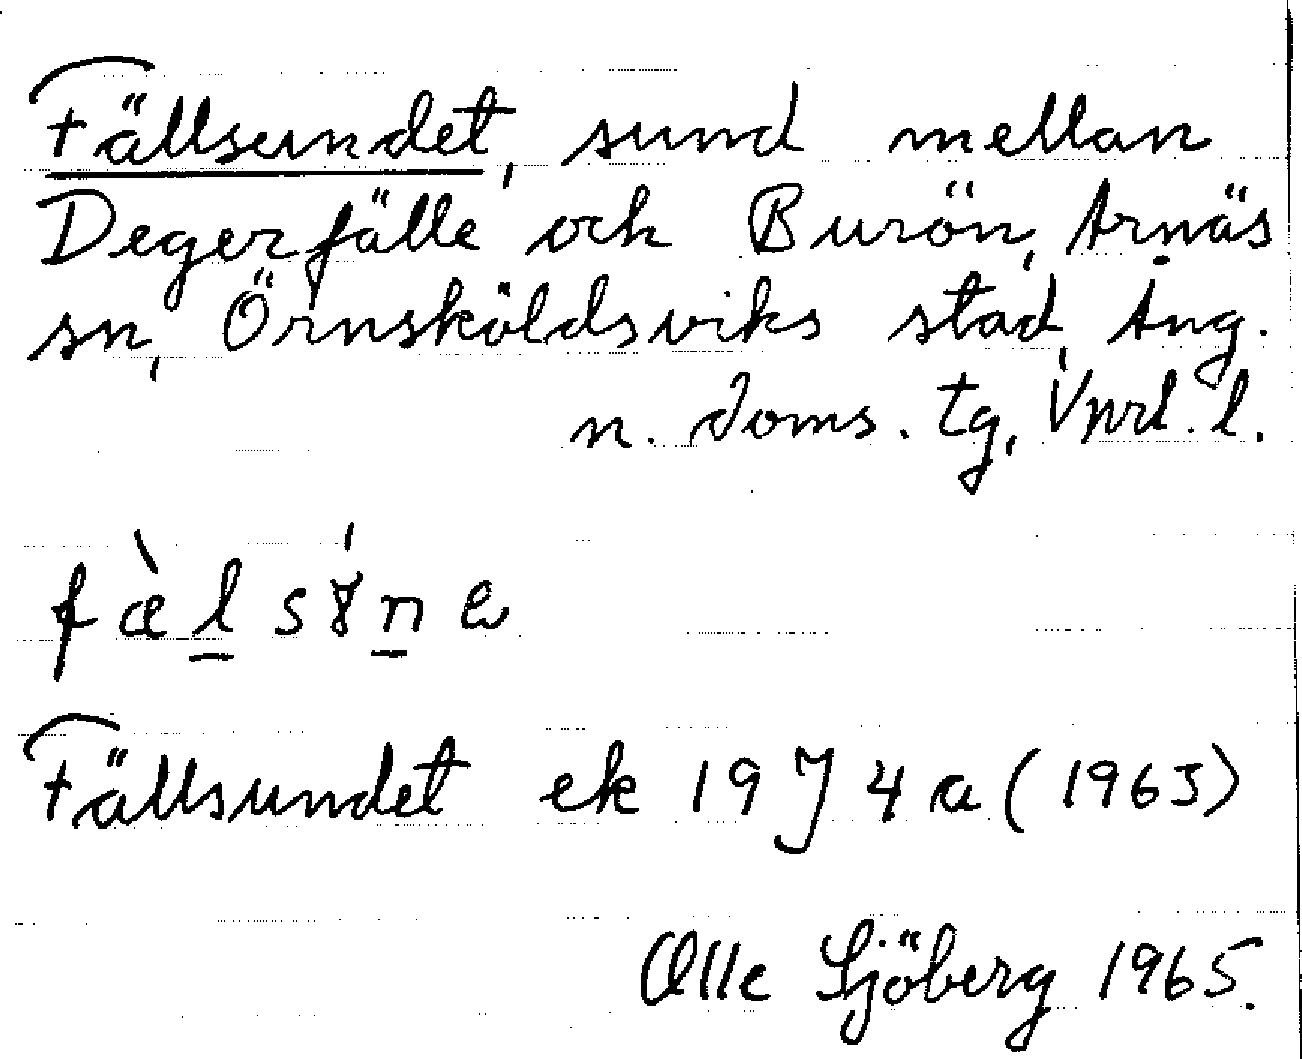 Fällsundet, sund mellan
Degerfälle och Burön, Arnäs
sn, Örnsköldsviks stad, Ång.
n. doms. tg, Vnrl. l.
fæ̀l̲sɤ́n̲e
Fällsundet ek 19 J 4 a (1963)
Olle Sjöberg 1965.